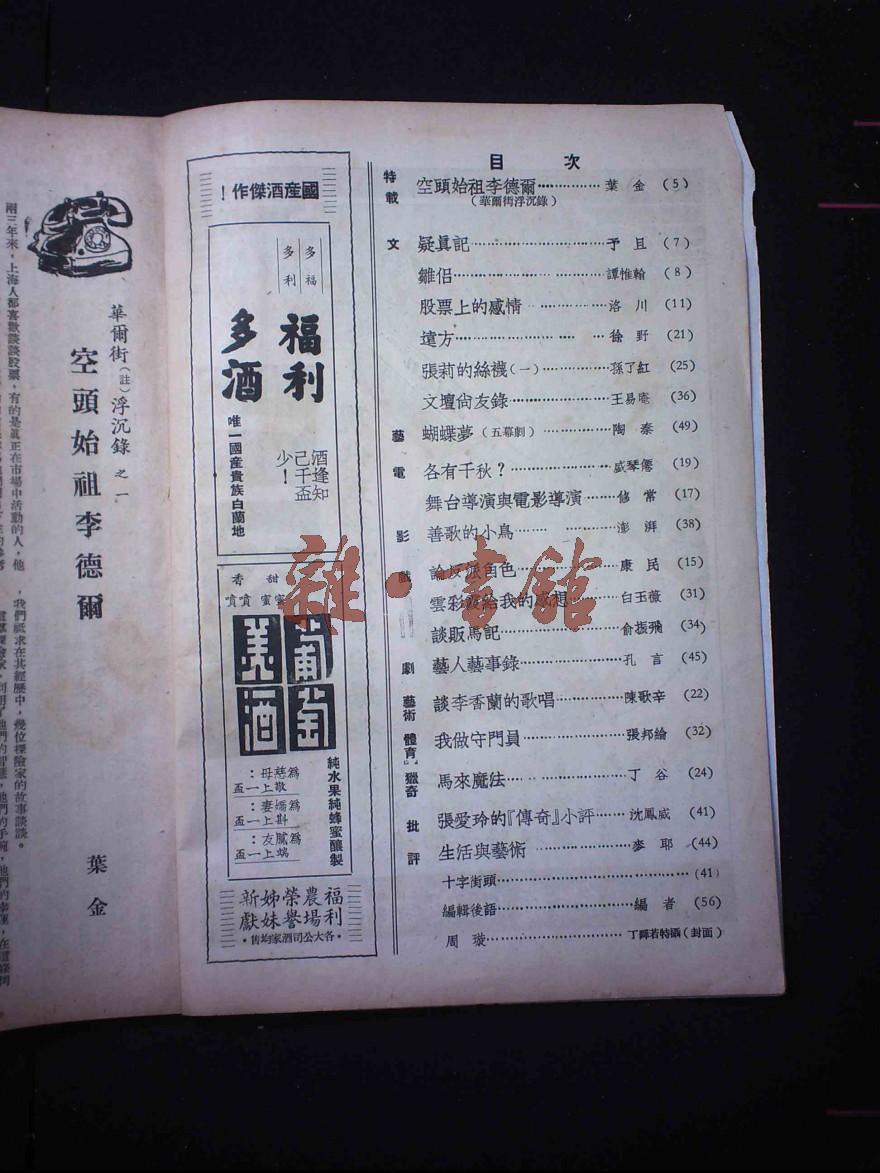 目次
特載
空頭始祖李德爾 葉金 (5)
(華爾街浮沉錄)
文
疑眞記 予且 (7)
雛侶 譚惟翰 (8)
股票上的感情 洛川 (11)
遠方 徐野 (21)
張莉的絲襪(一) 孫了紅 (25)
文壇尙友錄 王易庵 (36)
藝
蝴蝶夢(五幕劇) 陶秦 (49)
電
各有千秋? 盛琴僊 (19)
舞台導演與電影導演 (17)
影
善歌的小鳥 澎湃 (38)
戲
論反派角色 康民 (15)
雲彩霞給我的感想 白玉薇 (31)
談販馬記 俞振飛 (34)
劇
藝人藝事錄 孔言 (45)
藝術
談李香蘭的歌唱 陳歌辛 (22)
體育
我做守門員 張邦綸 (32)
獵奇
馬來魔法 丁谷 (24)
批評
張愛玲的『傳奇』小評 沈鳳威 (41)
生活與藝術 麥耶 (44)
十字街頭 (41)
編輯後語 編者 (56)
周璇 特攝(封面)
國産酒傑作!
多福
多利
福利
多酒
唯一國産貴族白蘭地
酒逢知
己千盃
少!
香甜
噴噴蜜蜜
葡萄
美酒
純水果純蜂蜜釀製
爲慈母:
敬上一盃
爲嬌妻:
斟上一盃
爲膩友:
端上一盃
福利農場榮譽姊妹新獻
·各大公司酒家均售·
華爾街(註)浮沉錄之一
空頭始祖李德爾
葉金
兩三年來,上海人都喜歡談談股票,有的是眞正在市場中活動的人,他
我們祗求在其經歷中,幾位探險家的故事談談。
雜·書館